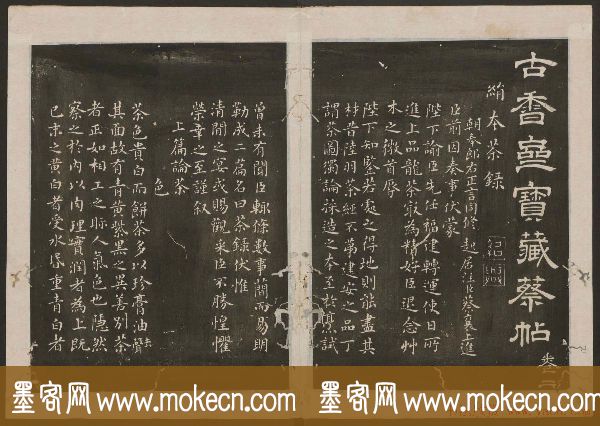 古香齋寶藏蔡帖
卷二
絹本茶録
朝奉郎右正言同修起居注臣蔡襄上進
臣前因奏事伏蒙
陛下諭臣先任福建轉運使日所
進上品龍茶最為精好臣退念草
木之微首辱
陛下知鑒若處之得地則能盡其
材昔陸羽茶經不第建安之品丁
謂茶圖獨論採造之本至於烹試
曾未有聞臣輒條數事簡而易明
勒成二篇名曰茶録伏惟
清閒之宴或賜觀采臣不勝惶懼
榮幸之至謹叙
上篇論茶
色
茶色貴白而餅茶多以珍膏油去聲
其面故有青黃紫黑之異善別茶
者正如相工之眎人氣色也隱然
察之於內以肉理實潤者為上既
已末之黃白者受水昏重青白者
墨客网www.mokecn.com 墨客网www.mokecn.com